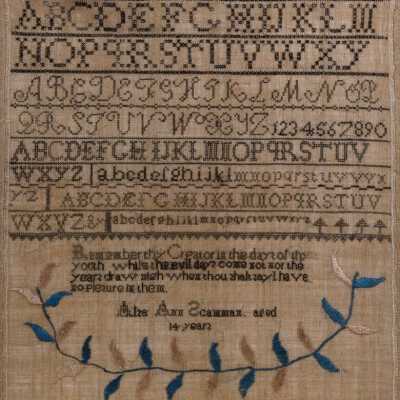 ABCDEFGHIJKLM
NOPQRSTUVWXY
ABCDEFGHIJKLMNOP
QRSTUVWXYZ 1234567890
ABCDEFGHIJKLMNOPQRSTUV
WXYZ abcdefghijklmnopqrstuvwx
yz ABCDEFGHIJKLMNOPQRSTUV
WXYZ& abcdefghijklmnopqrstuvwxyz
Remember thy Creator in the days of thy
youth while the evil days come not nor the
years draw nigh when thou shalt say I have
no plesure in them.
Ann Scamman. aged
14 years